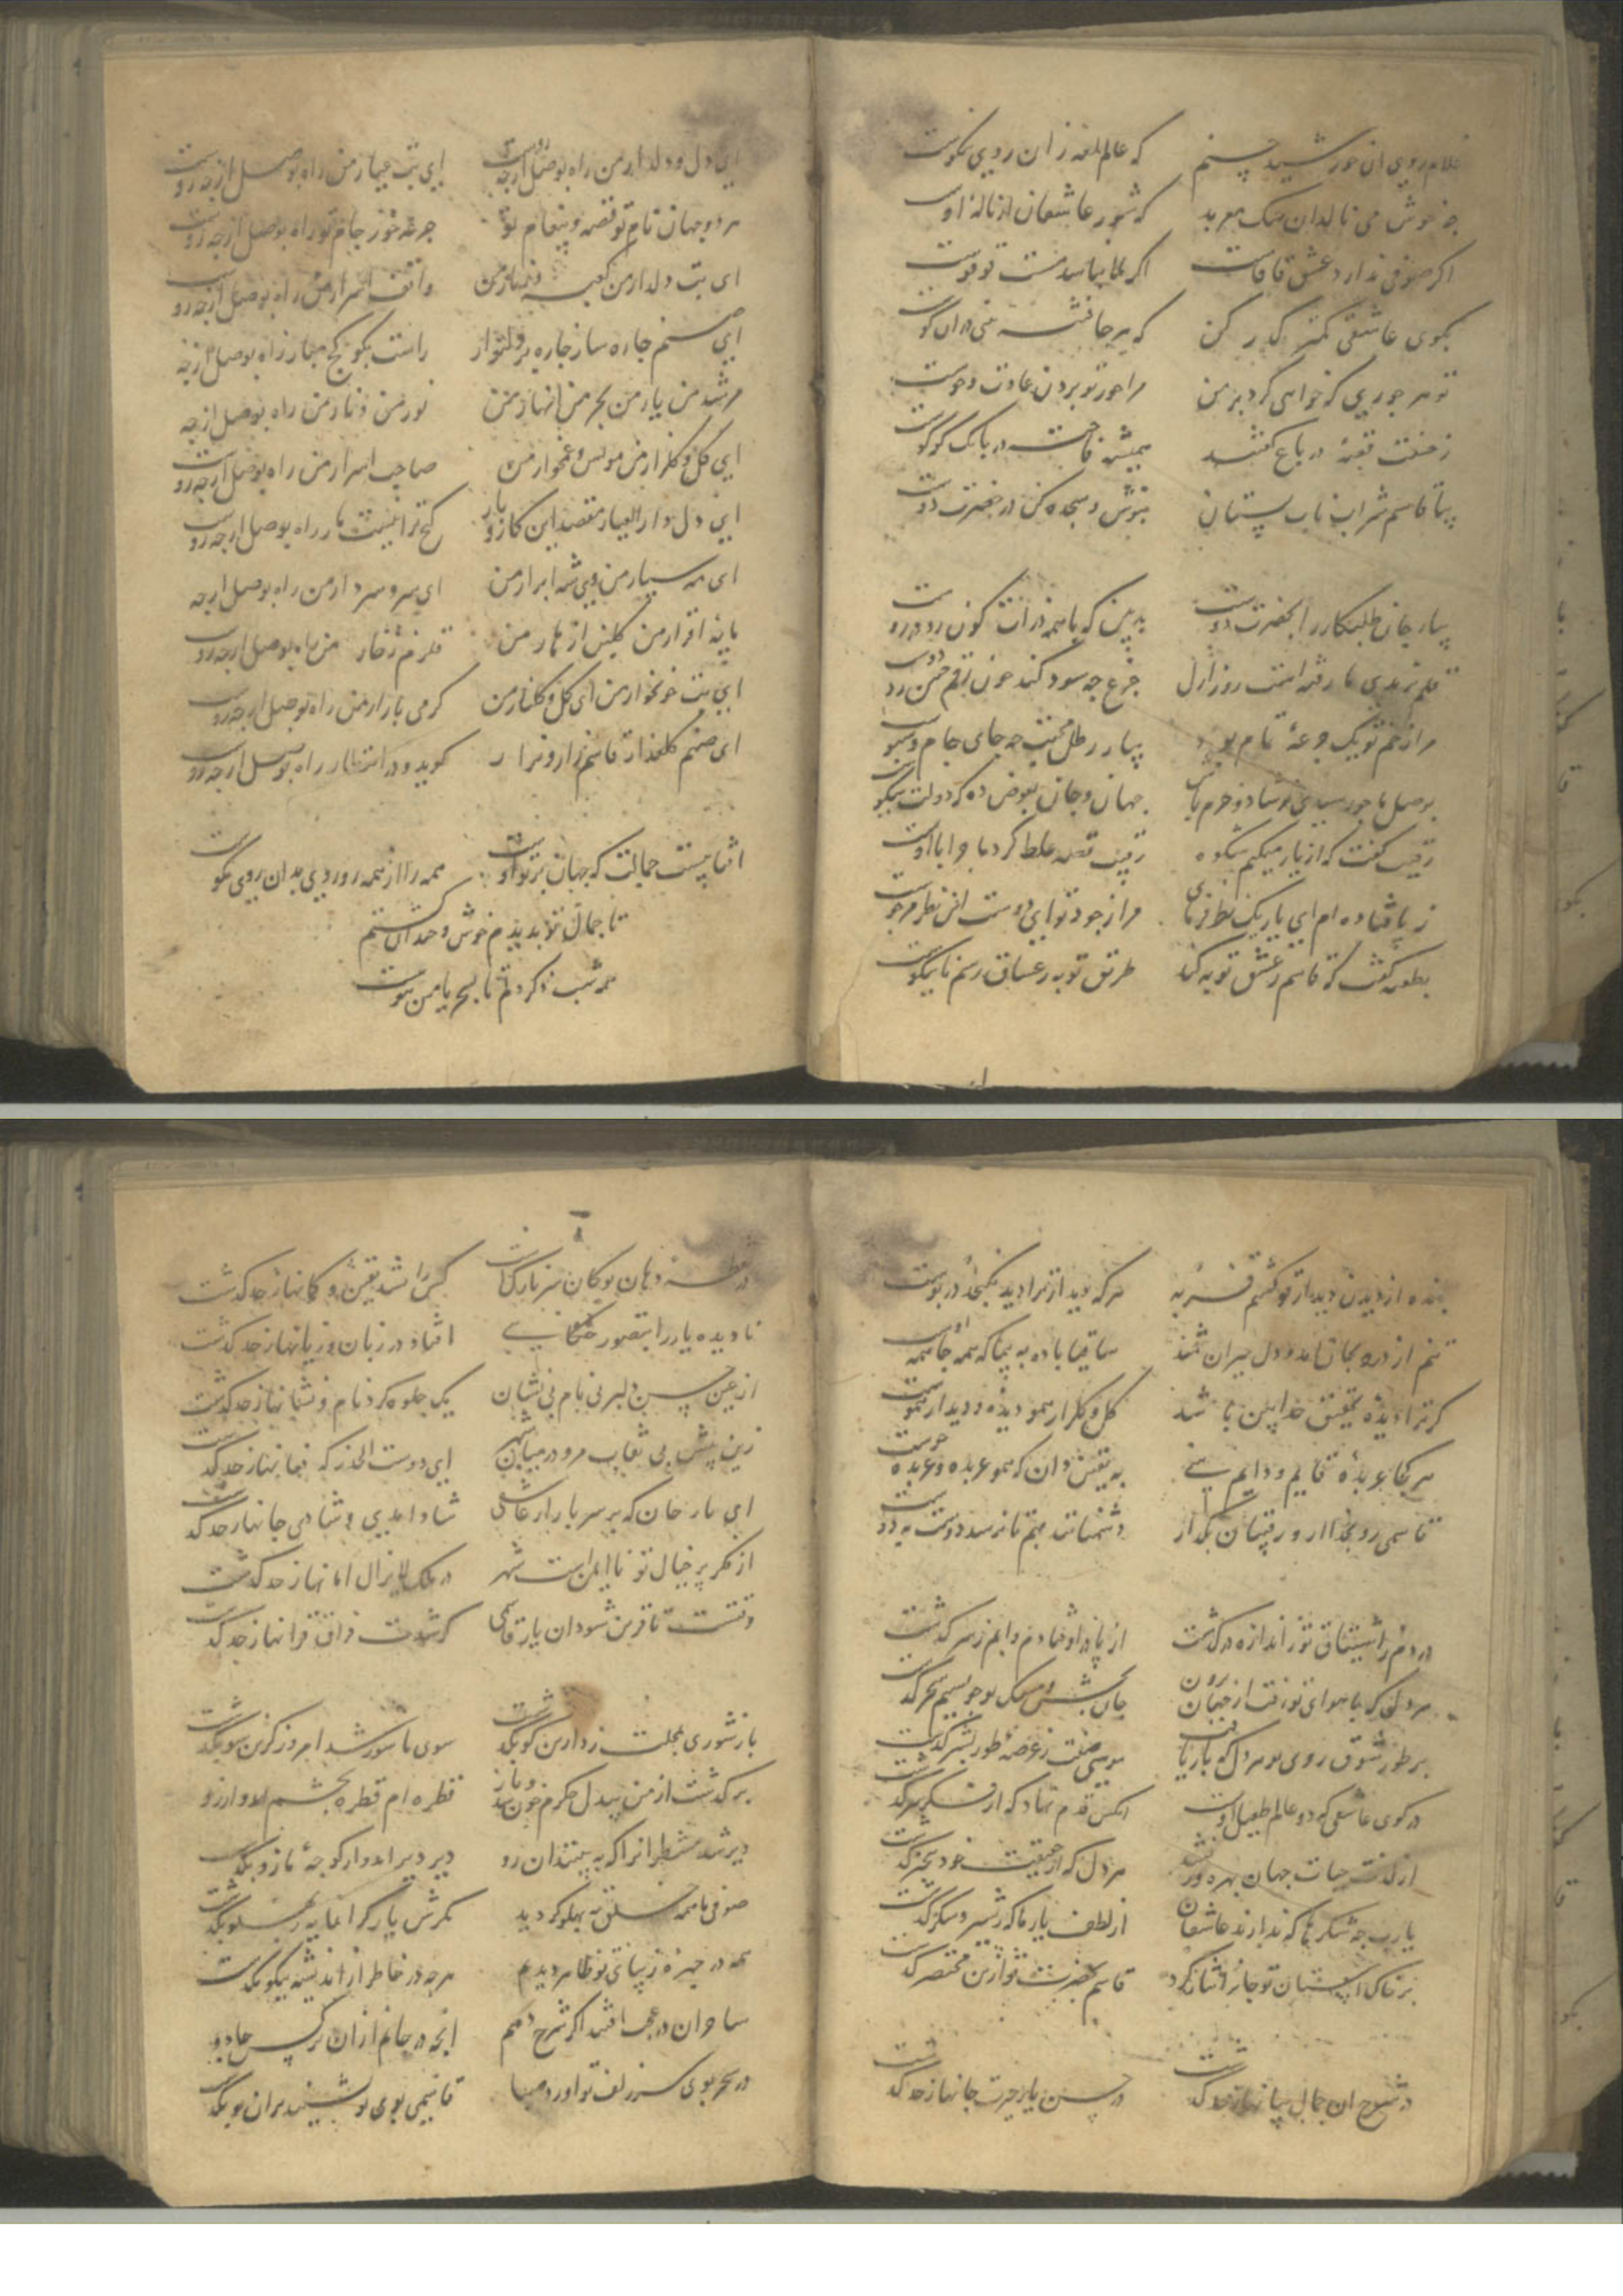 غلام روی ان خورشید چهرم که عالم لمعهٔ زان روی نکوست
چه خوش می نالد ان مست معربد که شور عاشقان از نالهٔ اوست
اگر صوفی ندارد عشق قافست اگر ملا نباشد مست تو توست
بکوی عاشقی کمتر گذر کن که هر جا فتنهٔ در ان کوست
تو هر جوری که خواهی کرد بر من مرا جور تو بردن عادت و خوست
در باغ گفتند همیشه فاخته در بانگ کوکوست
بیا قاسم شراب ناب بستان بنوش و سجده کن در حضرت دوست
بیار جان طلبکار را بحضرت دوست ببین که با همه ذرات کون رو در روست
قلم نرفت روز ازل جزع چه سود کند چون رقم چنین رو
مرا ز خم تو یک جرعهٔ تمام بود بیار رطل محبت چه جای جام و سبوست
بوصل ما چو رسیدی شاد و خرم باش جهان و جان بعوض ده که دولت نیکوست
رقیب گفت که از یار میکنم شکوه رقیب قصه غلط کرد
ز پا فتاده ام ای یار یک نظر فرمای مرا ز جود تو ای دوست این نظر مرجوست
بطعنه گفت که قاسم ز عشق توبه کند طریق توبه ز عشاق رسم نانیکوست
ای دل و دلدار من راه بوصل از چه روست ای بت عیار من راه بوصل از چه روست
هر دو جهان نام تو قصه و پیغام تو جرعه خور جام تو راه بوصل از چه روست
ای بت دلدار من کعبه و من واقف اسرار من راه بوصل از چه رو
ای صنم چاره ساز چاره بر دلنواز راست بگو کج مباز راه بوصل از چه
مرشد من یار من بحر من انهار من نور من و نار من راه بوصل از چه
ای گل و گلزار من مونس و غمخوار من صاحب اسرار من راه بوصل از چه روست
ای دل و دار العیار مقصد این کار و بار گنج ترا نیست مار راه بوصل از چه روست
ای مه سیار من وی شه ابرار من ای سر و سردار من راه بوصل از چه
مایه اقرار من گلبن ازهار من قلزم زخار من راه بوصل از چه روست
ای بت خونخوار من ای گل و گلنار من گرمی بازار من راه بوصل از چه روست
ای صنم گلعذار قاسم زار و نزار گوید و در انتظار راه بوصل از چه روست
افتابیست جمالت که جهان پرتو اوست همه را از همه رو روی بدان روی نکوست
تا جمال تو بدیدم خوش و خندان گشتم
همه شب ذکر دلم تا بسحر یا من هوست
بنده از دیدن دیدار تو گشتم فربه هر که دید از تو مرا دید نگنجد در پوست
تنم از درد بجان امد و دل حیران شد ساقیا باده به پیما که همه جا همه اوست
گر ترا دیدهٔ تحقیق خدابین باشد گل و گلزار همو دیده و دیدار همو
هر کجا عربدهٔ قایم و دایم بینی به یقین دان که همو عربده و عربده خوست
قاسمی رو بخدا ار و رقیبان بگذار دشمنانند بهم تا نرسد دوست بدوست
دردم ز اشتیاق تو ز اندازه در گذشت از پا در اوفتادم و ابم ز سر گذشت
هر دل که با هوای تو رفت از جهان برون جان بخش و مشک بو چو نسیم سحر گذشت
بر طور شوق روی تو هر دل که بار یافت موسی صفت ز عرصهٔ طور بشر گذشت
در کوی عاشقی که دو عالم طفیل اوست انکس قدم نهاد که از سر گذشت
از لذت حیات جهان بهره ور نشد هر دل که از حقیقت خود بیخبر گذشت
یا رب چه شکرها که ندارند عاشقان از لطف یار ما که ز شیر و شکر گذشت
بر خاک استان تو جان را نثار کرد قاسم بحضرت تو ازین مختصر گذشت
در شرح ان جمال بیانها ز حد گذشت در حسن یار حیرت جانها ز حد گذشت
در نقطهٔ دهان تو کان سر نازکست کس را نشد یقین و گمانها ز حد گذشت
نادیده یار را بتصور حکایتی افتاد در زبان و زبانها ز حد گذشت
از عین حسن دلبر بی نام بی نشان یک جلوه کرد نام و نشانها ز حد گذشت
زین پیش بی نقاب مرو در میان شهر ای دوست الحذر که فغانها ز حد گذشت
ای یار جان که بر سر بازار عاشقی شاد امدی و شادی جانها ز حد گذشت
از مکر پر خیال تو نا ایمن است شهر در ملک لایزال امانها ز حد گذشت
وقتست تا قرین شود ان یار قاسمی کز شدت فراق قرانها ز حد گذشت
باز شوری بمحلت زد ازین کو بگذشت سوی ما شور شد امروز کزین سو بگذشت
بر گذشت از من بیدل جگرم خون شد و باز قطره ام قطره بچشم امد و از رو
دیر شد منتظرانرا که ببینند ان رو دیر دیر امد و از کوچهٔ ما زود بگذشت
صوفی ما همه شب خلق به پهلو گردید مکرش یار گرانمایه ز پهلو بگذشت
همه در چهرهٔ زیبای تو ظاهر دیدم هر چه در خاطر از اندیشهٔ نیکو بگذشت
ساحران در عجب افتند اگر شرح دهم انچه در جانم از ان نرگس جادو
در سحر بوی سر زلف تو اورد صبا قاسمی بوی تو بشنید بران بو بگذشت